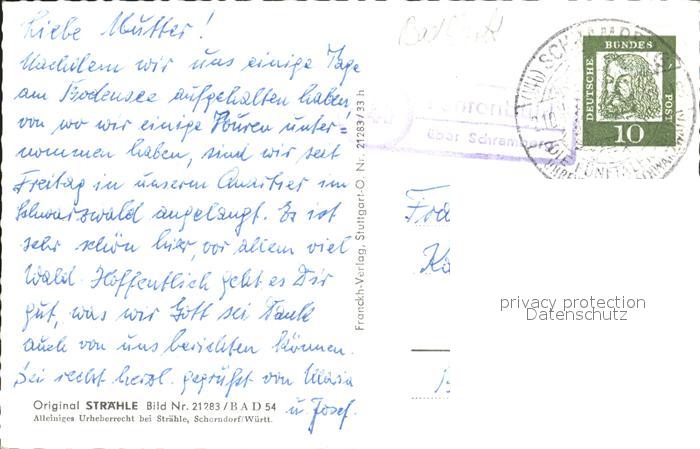 Liebe Mutter!
Nachdem wir uns einige Tage
am Bodensee aufgehalten haben,
von wo wir einige Touren unter=
nommen haben, sind wir seit
Freitag in unserm Quartier im
Schwarzwald angelangt. Es ist
sehr schön hier, vor allem viel
Wald. Hoffentlich geht es Dir
gut, was wir Gott sei Dank
auch von uns berichten können.
Sei recht herzl. gegrüßt von Maria
u Josef.
Original STRÄHLE Bild Nr. 21283/BAD 54
Alleiniges Urheberrecht bei Strähle, Schorndorf/Württ.
Franckh-Verlag, Stuttgart-O, Nr. 21283/33 h
über Schramberg
DEUTSCHE BUNDESPOST
10
privacy protection
Datenschutz